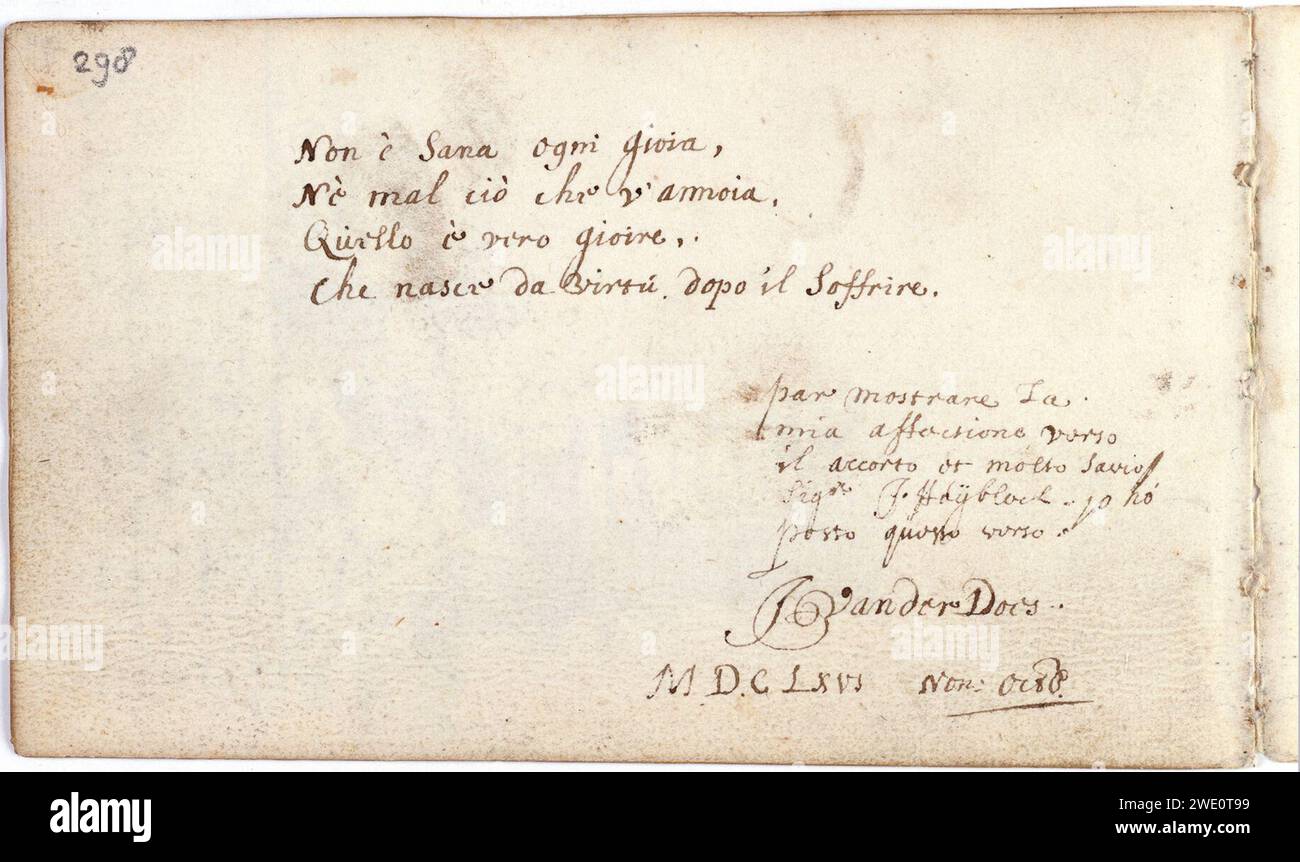 298
Non è sana ogni gioia,
Nè mal ciò che v'annoia.
Quello è vero gioire,
Che nasce da virtú dopo il soffrire.
par mostrare la
mia affectione verso
il accorto et molto savio
Sigr J. Heyblock. jo hó
posto questo verso.
J Vander Does.
MDCLXVI Non: Octob.
alamy
Image ID: 2WE0T99
www.alamy.com